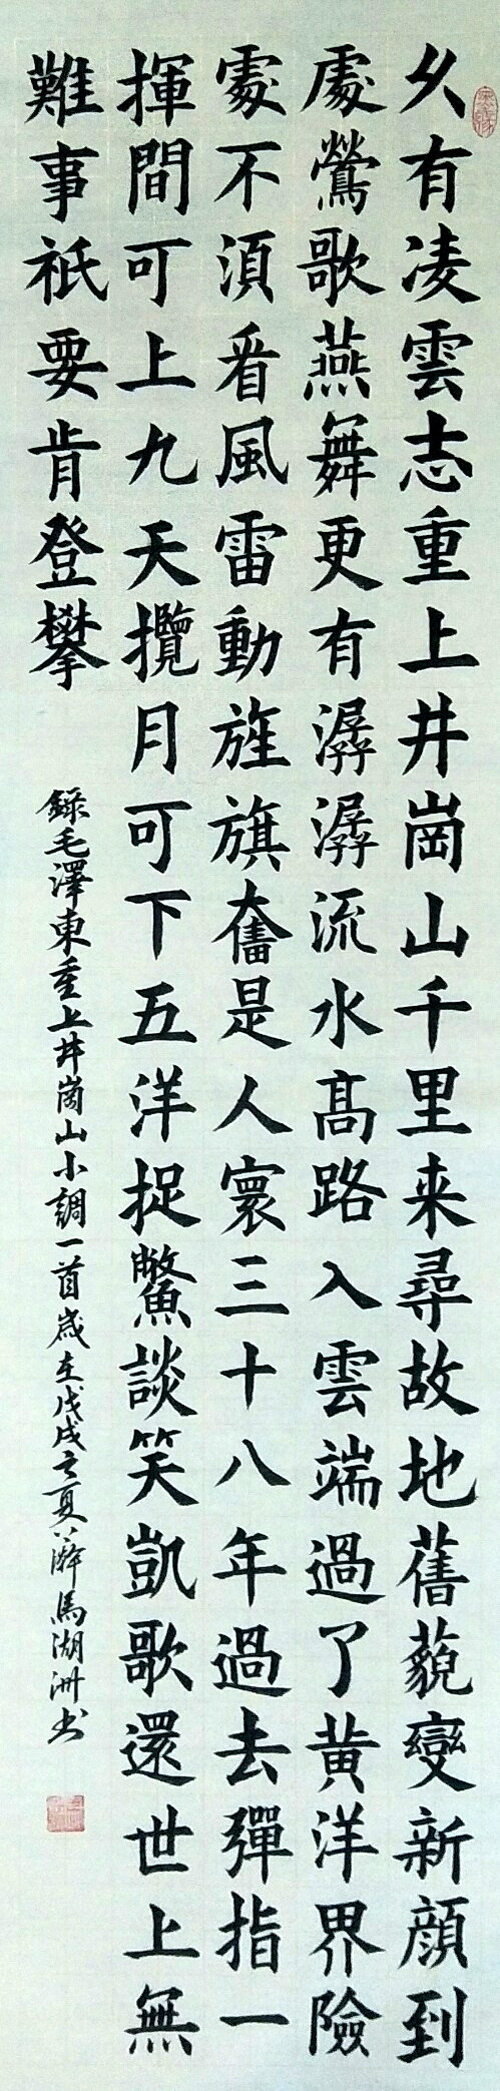 久有凌雲志重上井崗山千里来尋故地舊藐變新顔到
處鶯歌燕舞更有潺潺流水髙路入雲端過了黄洋界險
處不湏看風雷動旌旗奮是人寰三十八年過去彈指一
揮間可上九天攬月可下五洋捉鱉談笑凱歌還世上無
難事祇要肯登攀
錄毛澤東重上井崗山小調一首歲在戊戌之夏馬湖洲书